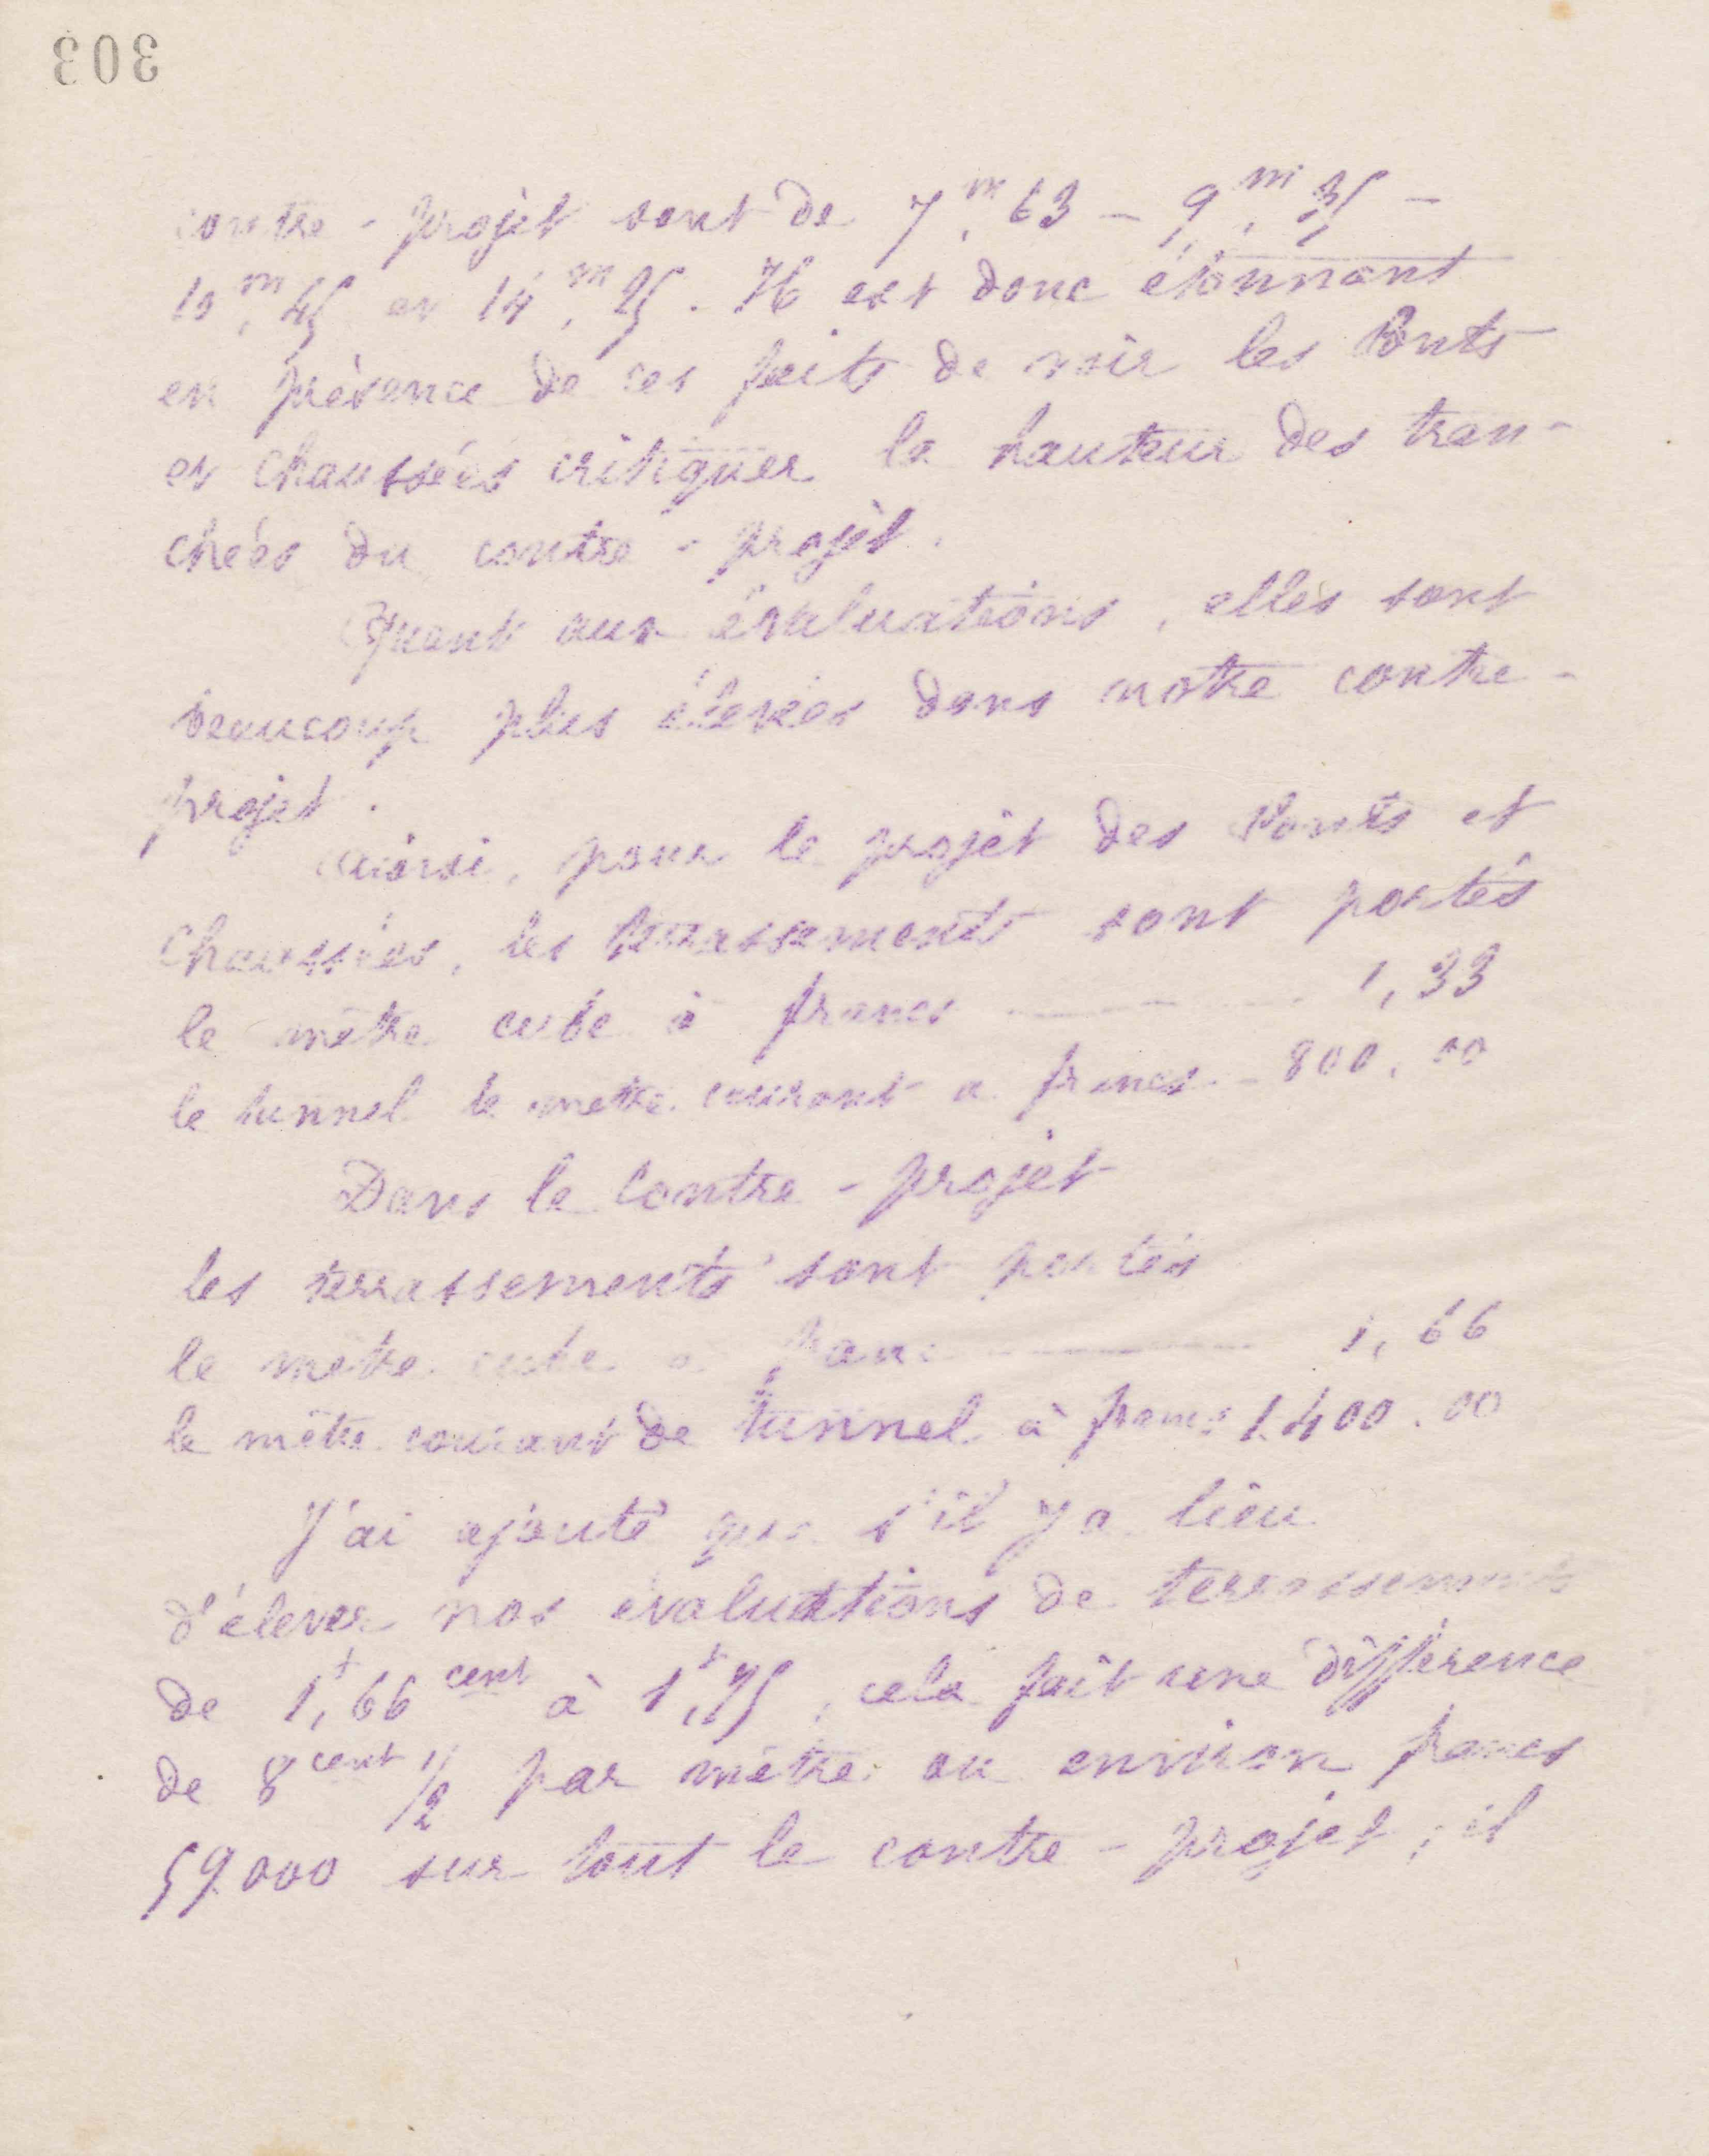 303
contre-projet sont de 7,m 63 – 9,m 35 –
10,m 45 et 14,m 25. Il est donc étonnant
en présence de ces faits de voir les Ponts
et Chaussées critiquer la hauteur des tran-
chées du contre-projet.
Quant aux évaluations, elles sont
beaucoup plus élevées dans notre contre-
projet.
Ainsi, pour le projet des Ponts et
Chaussées, les terrassements sont portés
le mètre cube à francs 1,33
le tunnel le mètre courant a francs – 800,00
Dans le Contre-projet
les terrassements sont portés
le mètre cube a franc 1,66
le mètre courant de tunnel à francs 1.400.00
J'ai ajouté que s'il y a lieu
d'élever nos évaluations de terrassements
de 1,f 66 cent à 1,f 75, cela fait une différence
de 8 cent 1/2 par mètre ou environ francs
59.000 sur tout le contre-projet; il